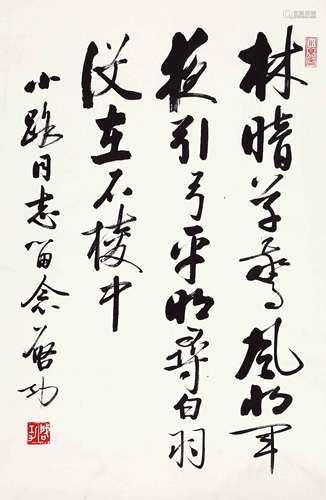 林暗草驚風将军
夜引弓平明尋白羽
没在石棱中
小路同志留念 启功